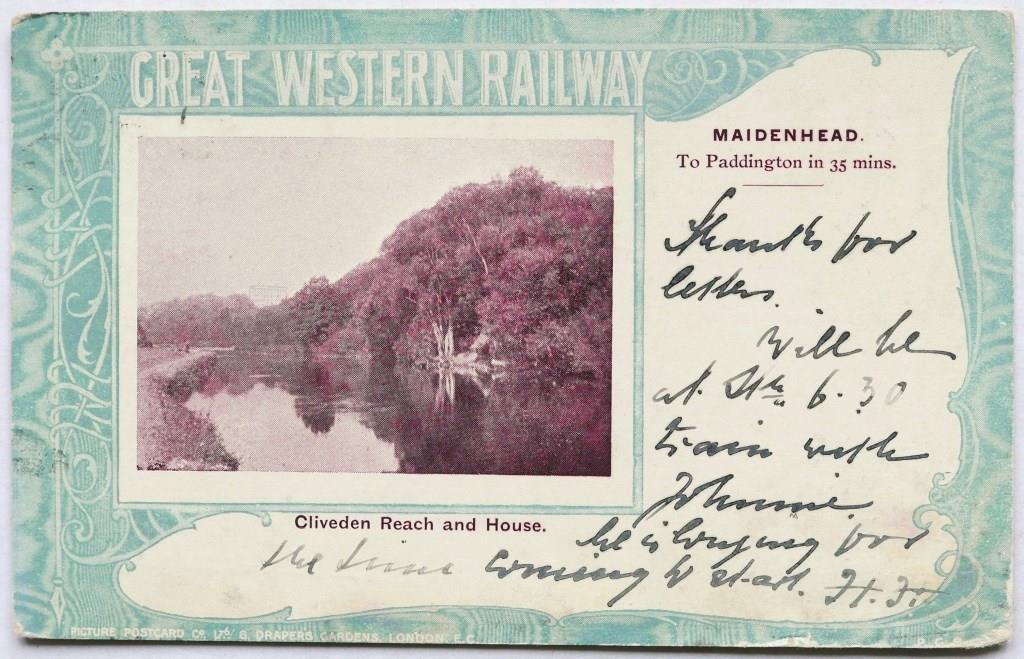 GREAT WESTERN RAILWAY
MAIDENHEAD.
To Paddington in 35 mins.
Thanks for
letters.
Will be
at Stn 6.30
train with
Johnnie.
he is longing for
the time coming to start.
Cliveden Reach and House.
PICTURE POSTCARD Co. LTD. 6, DRAPERS GARDENS, LONDON, E.C.